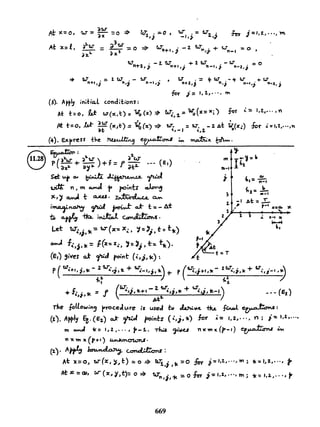 At x=0, w = ∂w/∂x = 0 ⇒ w_{1,j} = 0, w_{-1,j} = w_{2,j} for j=1,2,⋯,m
At x=l, ∂²w/∂x² = ∂³w/∂x³ = 0 ⇒ w_{n+1,j} - 2 w_{n,j} + w_{n-1,j} = 0,
w_{n+2,j} - 2 w_{n+1,j} + 2 w_{n-1,j} - w_{n-2,j} = 0
⇒ w_{n+1,j} = 2 w_{n,j} - w_{n-1,j}, w_{n+2,j} = 4 w_{n,j} - 4 w_{n-1,j} + w_{n-2,j}
for j = 1,2,⋯,m
(3). Apply initial conditions:
At t=0, let w(x,t) = w_0(x) ⇒ w_{i,1} = w_0(x=x_i) for i=1,2,⋯,n
At t=0, let ∂w/∂t (x,t) = ẇ_0(x) ⇒ w_{i,-1} = w_{i,2} - 2 Δt ẇ_0(x_i) for i=1,2,⋯,n
(4). Express the resulting equations in matrix form.
11.28 Equation:
P(∂²w/∂x² + ∂²w/∂y²) + f = ρ ∂²w/∂t² --- (E1)
Set up a finite difference grid
with n, m and p points along
x, y and t axes. Introduce an
imaginary grid point at t = -Δt
to apply the initial conditions.
Let w_{i,j,k} = w(x=x_i, y=y_j, t=t_k)
and f_{i,j,k} = f(x=x_i, y=y_j, t=t_k).
(E1) gives at grid point (i,j,k):
P (w_{i+1,j,k} - 2 w_{i,j,k} + w_{i-1,j,k} / h_1²) + P (w_{i,j+1,k} - 2 w_{i,j,k} + w_{i,j-1,k} / h_2²)
+ f_{i,j,k} = ρ (w_{i,j,k+1} - 2 w_{i,j,k} + w_{i,j,k-1} / Δt²) --- (E2)
The following procedure is used to derive the final equations:
(1). Apply Eq. (E2) at grid points (i,j,k) for i=1,2,⋯,n; j=1,2,⋯,
m and k=1,2,⋯,p-1. This gives n×m×(p-1) equations in
n×m×(p+1) unknowns.
(2). Apply boundary conditions:
At x=0, w(x,y,t) = 0 ⇒ w_{1,j,k} = 0 for j=1,2,⋯,m; k=1,2,⋯,p
At x=a, w(x,y,t)=0 ⇒ w_{n,j,k} = 0 for j=1,2,⋯,m; k=1,2,⋯,p
669